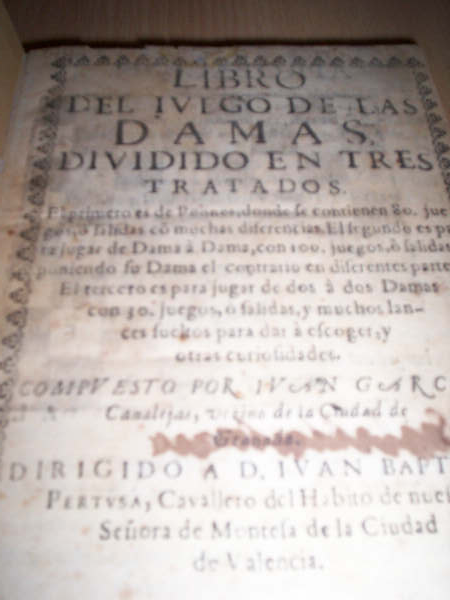 LIBRO
DEL IVEGO DE LAS
DAMAS,
DIVIDIDO EN TRES
TRATADOS.
El primero es de Peones, donde se contienen 80. jue
gos, ò salidas cõ muchas diferencias. El segundo es pa
ra jugar de Dama à Dama, con 100. juegos, ò salidas
poniendo su Dama el contrario en diferentes parte
El tercero es para jugar de dos à dos Damas
con 30. juegos, ò salidas, y muchos lan-
ces sueltos para dar à escoger, y
otras curiosidades.
COMPVESTO POR IVAN GARC
Canalejas, vezino de la Ciudad de
Granada.
DIRIGIDO A D. IVAN BAPT
PERTVSA, Cavallero del Habito de nues
Señora de Montesa de la Ciudad
de Valencia.